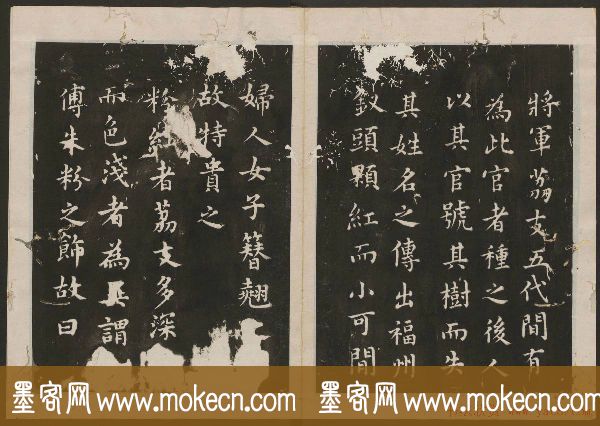 將軍荔支五代間有
為此官者種之後人
以其官號其樹而失
其姓名之傳出福州
釵頭顆紅而小可間
婦人女子簪翹
故特貴之
粉紅者荔支多深
而色淺者為異謂
傅朱粉之飾故曰
墨客网 www.mokecn.com 墨客网 www.mokecn.com